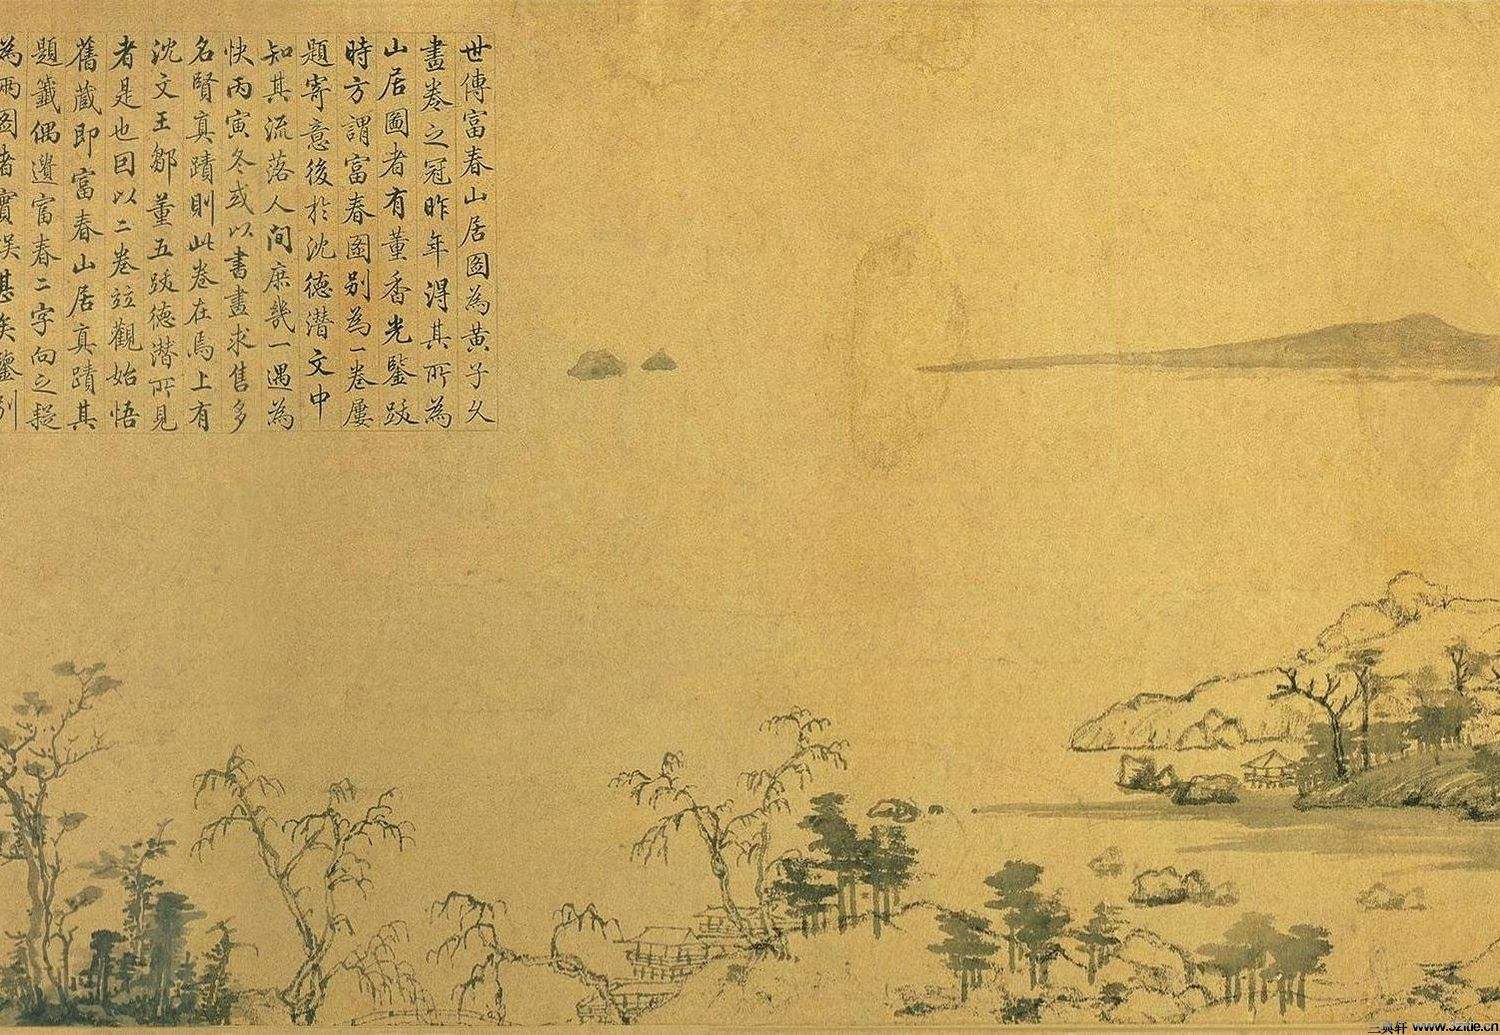 世傳富春山居圖為黃子久
畫卷之冠昨年得其所為
山居圖者有董香光鑒跋
時方謂富春圖别為一卷屢
題寄意後於沈德潛文中
知其流落人間庶幾一遇為
快丙寅冬或以書畫求售多
名賢真蹟則此卷在焉上有
沈文王鄒董五跋德潛所見
者是也因以二卷竝觀始悟
舊藏即富春山居真蹟其
題籤偶遺富春二字向之疑
為兩圖者實誤甚矣鑒别
三奥軒 www.32ide.cn